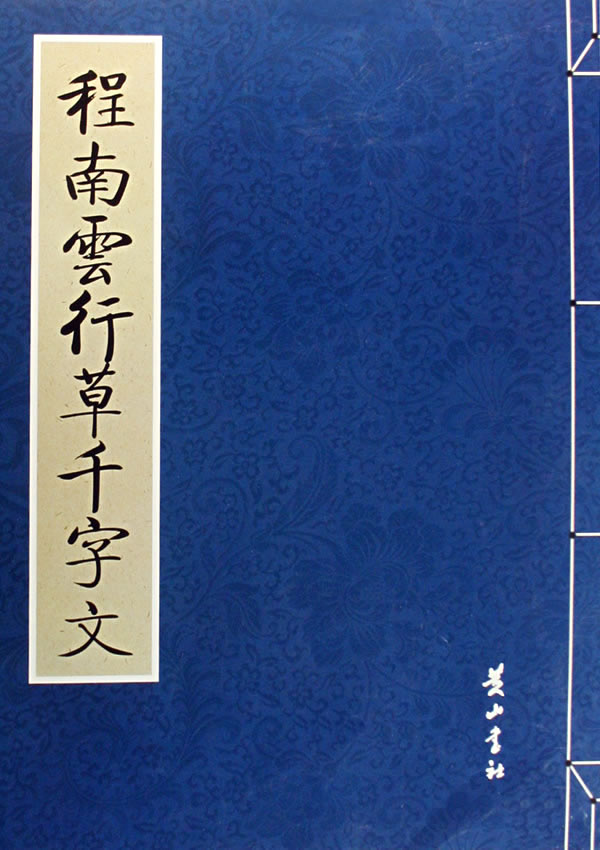 程南雲行草千字文
黄山書社